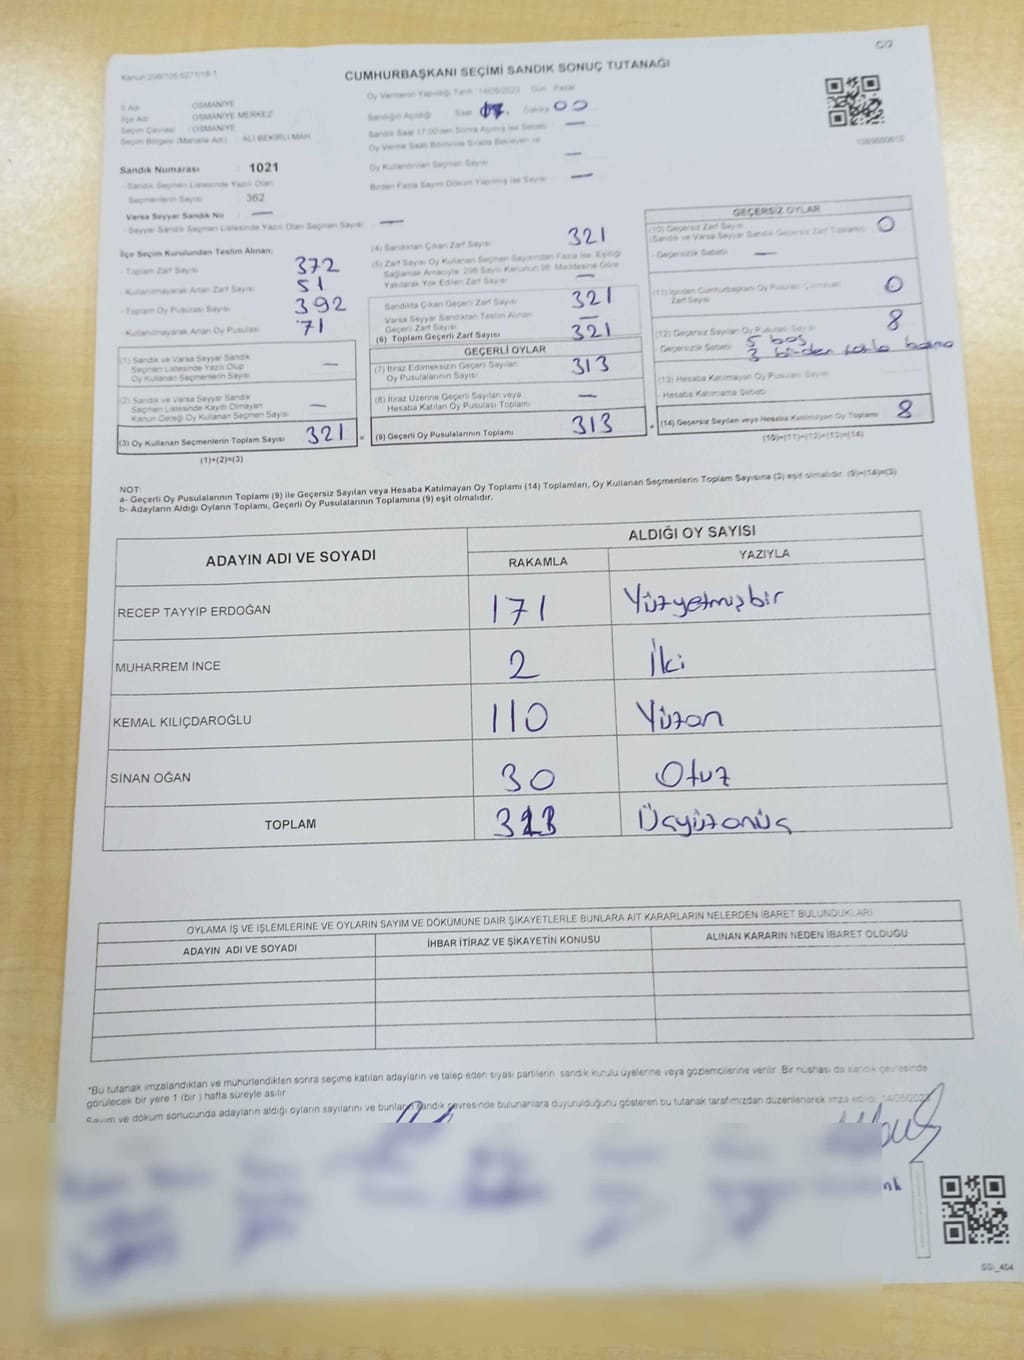 C/2
Kanun 298/105-6271/18-1
CUMHURBAŞKANI SEÇİMİ SANDIK SONUÇ TUTANAĞI
İl Adı : OSMANİYE
İlçe Adı : OSMANİYE MERKEZ
Seçim Çevresi : OSMANİYE
Seçim Bölgesi (Mahalle Adı) : ALİ BEKİRLİ MAH.
Sandık Numarası : 1021
- Sandık Seçmen Listesinde Yazılı Olan
Seçmenlerin Sayısı : 362
Varsa Seyyar Sandık No : —
- Seyyar Sandık Seçmen Listesinde Yazılı Olan Seçmen Sayısı: —
Oy Vermenin Yapıldığı Tarih : 14/05/2023 Gün : Pazar
Sandığın Açıldığı Saat : 17. Dakika 00
Sandık Saat 17.00'den Sonra Açılmış İse Sebebi : —
Oy Verme Saati Bitiminde Sırada Bekleyen ve
Oy Kullandırılan Seçmen Sayısı : —
Birden Fazla Sayım Döküm Yapılmış İse Sayısı : —
İlçe Seçim Kurulundan Teslim Alınan;
- Toplam Zarf Sayısı : 372
- Kullanılmayarak Artan Zarf Sayısı : 51
- Toplam Oy Pusulası Sayısı : 392
- Kullanılmayarak Artan Oy Pusulası : 71
(1) Sandık ve Varsa Seyyar Sandık
Seçmen Listesinde Yazılı Olup
Oy Kullanan Seçmenlerin Sayısı —
(2) Sandık ve Varsa Seyyar Sandık
Seçmen Listesinde Kayıtlı Olmayan
Kanun Gereği Oy Kullanan Seçmen Sayısı —
(3) Oy Kullanan Seçmenlerin Toplam Sayısı 321
(1)+(2)=(3)
(4) Sandıktan Çıkan Zarf Sayısı 321
(5) Zarf Sayısı Oy Kullanan Seçmen Sayısından Fazla İse, Eşitliği
Sağlamak Amacıyla, 298 Sayılı Kanunun 98. Maddesine Göre
Yakılarak Yok Edilen Zarf Sayısı —
Sandıkta Çıkan Geçerli Zarf Sayısı 321
Varsa Seyyar Sandıktan Teslim Alınan
Geçerli Zarf Sayısı —
(6) Toplam Geçerli Zarf Sayısı 321
GEÇERLİ OYLAR
(7) İtiraz Edilmeksizin Geçerli Sayılan
Oy Pusulalarının Sayısı 313
(8) İtiraz Üzerine Geçerli Sayılan veya
Hesaba Katılan Oy Pusulası Toplamı —
(9) Geçerli Oy Pusulalarının Toplamı 313
GEÇERSİZ OYLAR
(10) Geçersiz Zarf Sayısı
(Sandık ve Varsa Seyyar Sandık Geçersiz Zarf Toplamı) 0
- Geçersizlik Sebebi : —
(11) İçinden Cumhurbaşkanı Oy Pusulası Çıkmayan
Zarf Sayısı 0
(12) Geçersiz Sayılan Oy Pusulası Sayısı 8
- Geçersizlik Sebebi : 5 boş
3 birden fazla basma
(13) Hesaba Katılmayan Oy Pusulası Sayısı
Hesaba Katılmama Sebebi
(14) Geçersiz Sayılan veya Hesaba Katılmayan Oy Toplamı 8
(10)+(11)+(12)+(13)=(14)
NOT:
a- Geçerli Oy Pusulalarının Toplamı (9) ile Geçersiz Sayılan veya Hesaba Katılmayan Oy Toplamı (14) Toplamları, Oy Kullanan Seçmenlerin Toplam Sayısına (3) eşit olmalıdır. (9)+(14)=(3)
b- Adayların Aldığı Oyların Toplamı, Geçerli Oy Pusulalarının Toplamına (9) eşit olmalıdır.
ADAYIN ADI VE SOYADI ALDIĞI OY SAYISI
RAKAMLA YAZIYLA
RECEP TAYYİP ERDOĞAN 171 Yüzyetmişbir
MUHARREM İNCE 2 İki
KEMAL KILIÇDAROĞLU 110 Yüzon
SİNAN OĞAN 30 Otuz
TOPLAM 313 Üçyüzonüç
OYLAMA İŞ VE İŞLEMLERİNE VE OYLARIN SAYIM VE DÖKÜMÜNE DAİR ŞİKAYETLERLE BUNLARA AİT KARARLARIN NELERDEN İBARET BULUNDUKLARI
ADAYIN ADI VE SOYADI İHBAR İTİRAZ VE ŞİKAYETİN KONUSU ALINAN KARARIN NEDEN İBARET OLDUĞU
"Bu tutanak imzalandıktan ve mühürlendikten sonra seçime katılan adayların ve talep eden siyasi partilerin sandık kurulu üyelerine veya gözlemcilerine verilir. Bir nüshası da sandık çevresinde
görülecek bir yere 1 (bir ) hafta süreyle asılır.
Sayım ve döküm sonucunda adayların aldığı oyların sayılarını ve bunların sandık çevresinde bulunanlara duyurulduğunu gösteren bu tutanak tarafımızdan düzenlenerek imza edildi. 14/05/2023
SSI_404